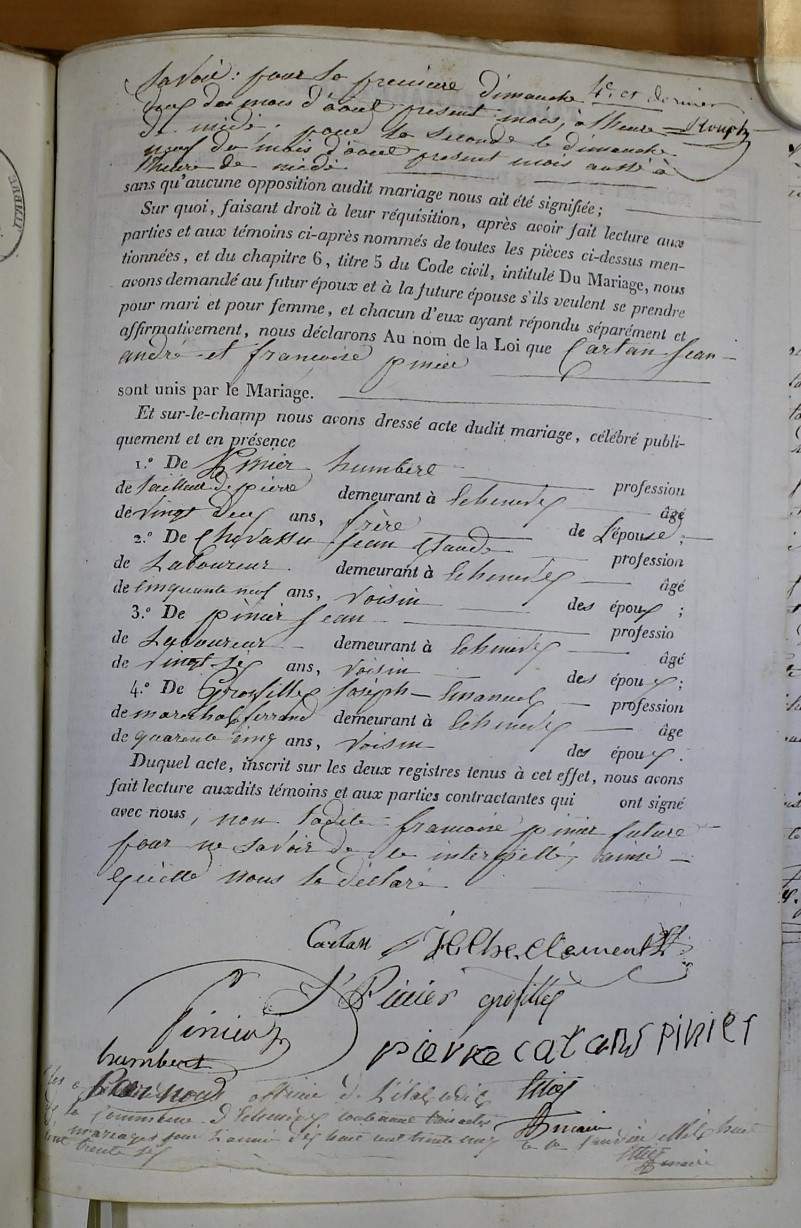 Savoir : pour la première dimanche 4e et dernier
jour des mois d'août présent mois, à l'heure
de midi. pour la seconde le dimanche
neuf du mois d'août présent mois aussi à
l'heure de midi
sans qu'aucune opposition audit mariage nous ait été signifiée ;
Sur quoi, faisant droit à leur réquisition, après avoir fait lecture aux
parties et aux témoins ci-après nommés de toutes les pièces ci-dessus men-
tionnées, et du chapitre 6, titre 5 du Code civil, intitulé Du Mariage, nous
avons demandé au futur époux et à la future épouse s'ils veulent se prendre
pour mari et pour femme, et chacun d'eux ayant répondu séparément et
affirmativement, nous déclarons Au nom de la Loi que Cartan Jean
andré et françoise pinier
sont unis par le Mariage.
Et sur-le-champ nous avons dressé acte dudit mariage, célébré publi-
quement et en présence
1.º De Pinier humbert profession
de tailleur de pierre demeurant à Echenevex âgé
de vingt deux ans, frère de L'épouse ;
2.º De Jean Claude profession
de Laboureur demeurant à Echenevex âgé
de cinquante neuf ans, voisin des époux ;
3.º De pinier Jean professio
de Laboureur demeurant à Echenevex âgé
de vingt six ans, voisin des époux ;
4.º De Grosfilley Joseph Emanuel profession
de marechal ferrand demeurant à Echenevex âge
de quarante cinq ans, voisin des époux.
Duquel acte, inscrit sur les deux registres tenus à cet effet, nous avons
fait lecture auxdits témoins et aux parties contractantes qui ont signé
avec nous, non ladite françoise pinier future
pour ne savoir de ce interpellé, ainsi
quelle nous la déclaré.
Cartan
J Pinier grosfilley
Pinier
humbert
pierre catans pinier
Par nous officier de L'état civil
la Commune d'Echenevex contenant trois actes maire
mariages pour l'année dix huit cent trente cinq
trente six maire